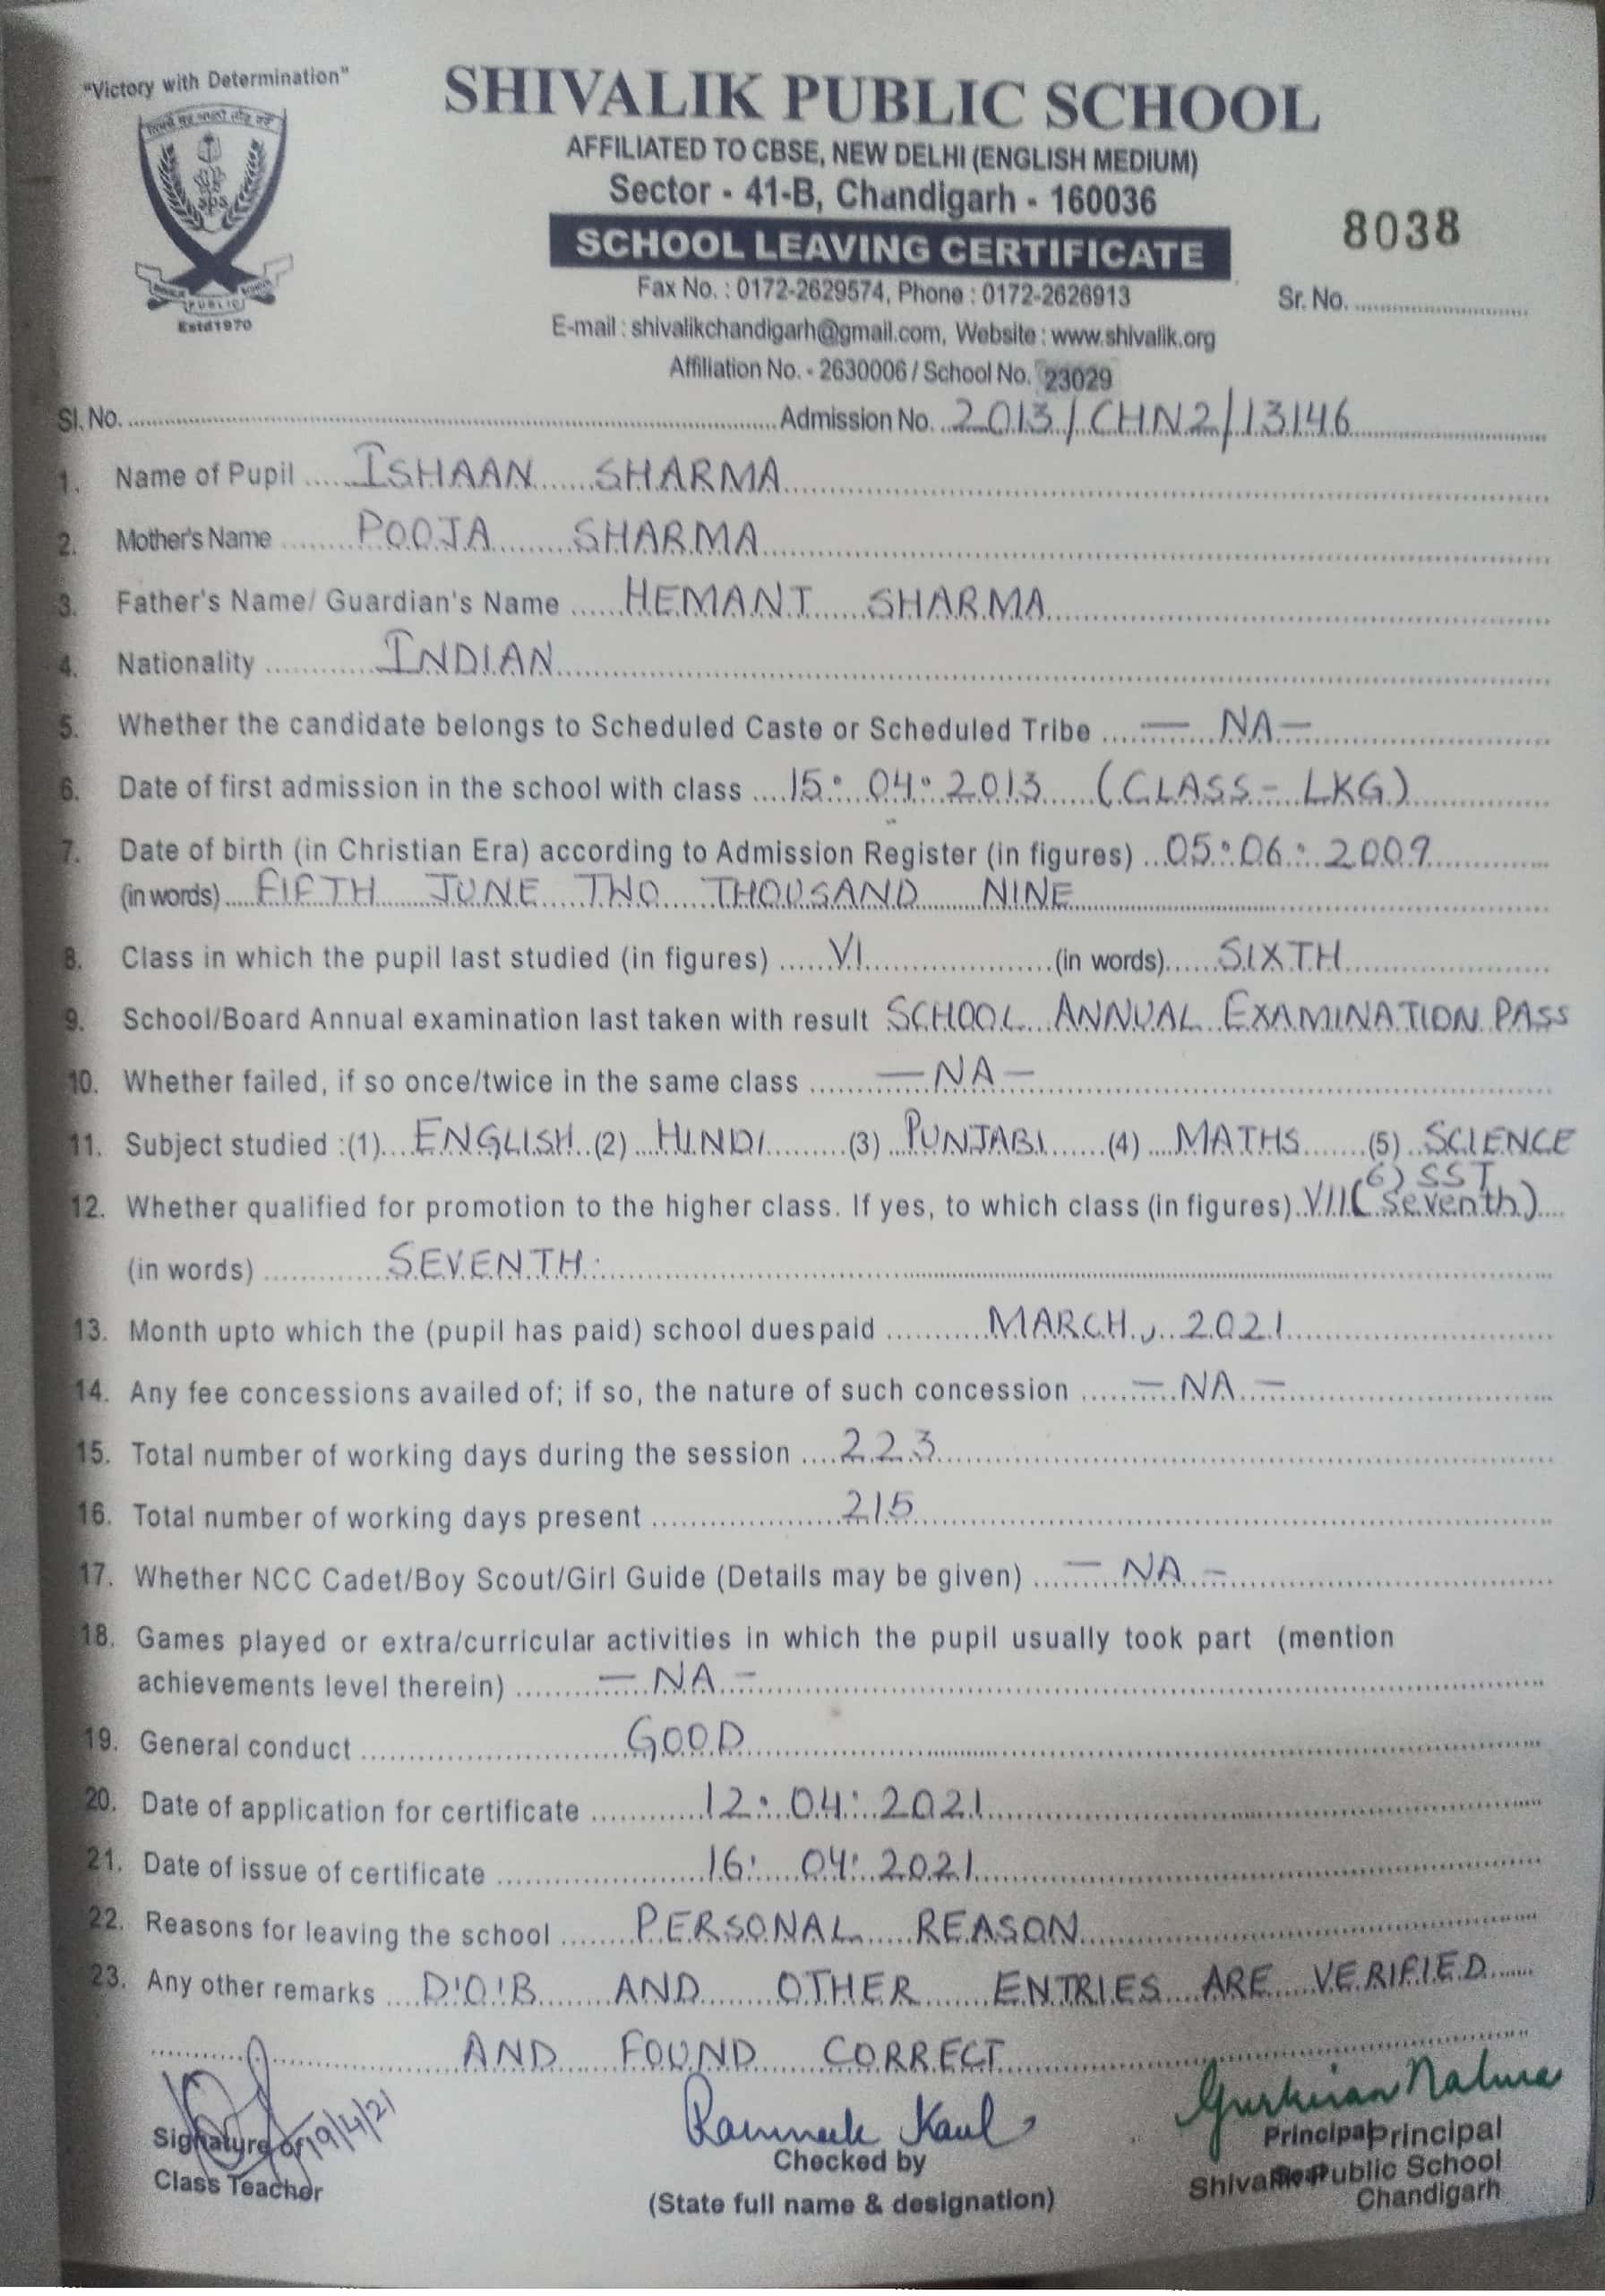 "Victory with Determination"
SHIVALIK PUBLIC SCHOOL
AFFILIATED TO CBSE, NEW DELHI (ENGLISH MEDIUM)
Sector - 41-B, Chandigarh - 160036
8038
SCHOOL LEAVING CERTIFICATE
SPS
PUBLIC
Estd 1970
Fax No. : 0172-2629574, Phone : 0172-2626913
Sr. No. ..............................
E-mail : shivalikchandigarh@gmail.com, Website : www.shivalik.org
Affiliation No. - 2630006 / School No. 23029
Sl. No. .............................. Admission No. 2013/CHN2/13146
1. Name of Pupil ISHAAN SHARMA
2. Mother's Name POOJA SHARMA
3. Father's Name/ Guardian's Name HEMANT SHARMA
4. Nationality INDIAN
5. Whether the candidate belongs to Scheduled Caste or Scheduled Tribe — NA —
6. Date of first admission in the school with class 15: 04: 2013 (CLASS - LKG)
7. Date of birth (in Christian Era) according to Admission Register (in figures) 05: 06: 2009
(in words) FIFTH JUNE TWO THOUSAND NINE
8. Class in which the pupil last studied (in figures) VI (in words) SIXTH
9. School/Board Annual examination last taken with result SCHOOL ANNUAL EXAMINATION PASS
10. Whether failed, if so once/twice in the same class — NA —
11. Subject studied :(1) ENGLISH (2) HINDI (3) PUNJABI (4) MATHS (5) SCIENCE
6) SST
12. Whether qualified for promotion to the higher class. If yes, to which class (in figures) VII (Seventh)
(in words) SEVENTH
13. Month upto which the (pupil has paid) school duespaid MARCH, 2021
14. Any fee concessions availed of; if so, the nature of such concession — NA —
15. Total number of working days during the session 223
16. Total number of working days present 215
17. Whether NCC Cadet/Boy Scout/Girl Guide (Details may be given) — NA —
18. Games played or extra/curricular activities in which the pupil usually took part (mention
achievements level therein) — NA —
19. General conduct GOOD
20. Date of application for certificate 12: 04: 2021
21. Date of issue of certificate 16: 04: 2021
22. Reasons for leaving the school PERSONAL REASON
23. Any other remarks D'O'B AND OTHER ENTRIES ARE VERIFIED
AND FOUND CORRECT
19/4/21
Signature of
Class Teacher
Ramneek Kaul
Checked by
(State full name & designation)
Principal
Principal
Shivalik Public School
Chandigarh